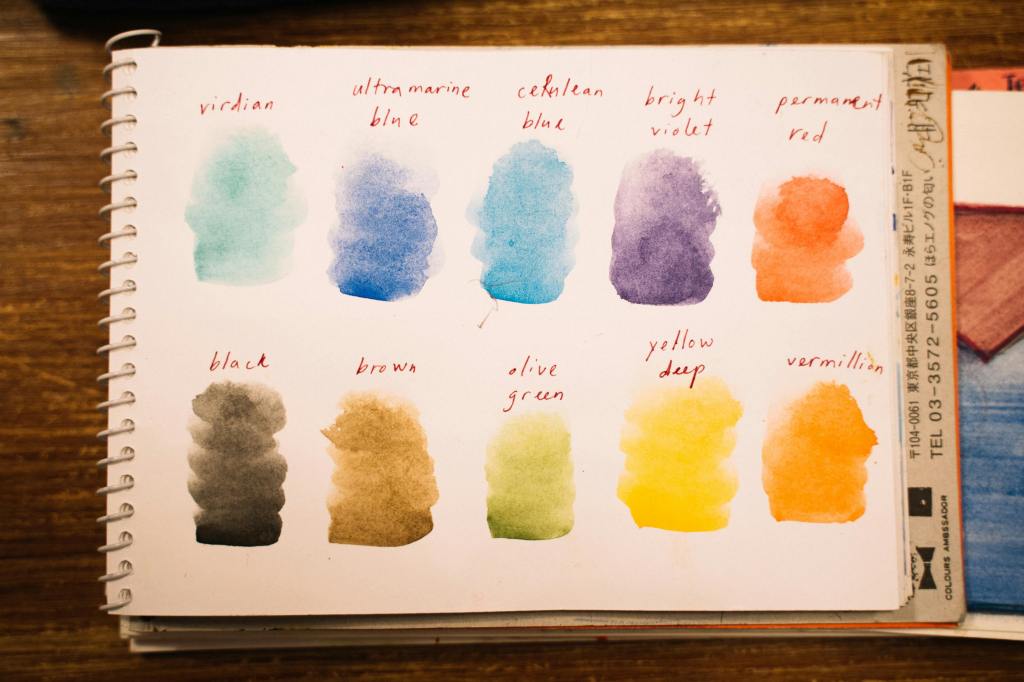 virdian
ultramarine
blue
cerulean
blue
bright
violet
permanent
red
black
brown
olive
green
yellow
deep
vermillion
〒104-0061 東京都中央区銀座8-7-2 永寿ビル1F・B1F
TEL 03-3572-5605 ほらエノグの匂い
COLOURS AMBASSADOR